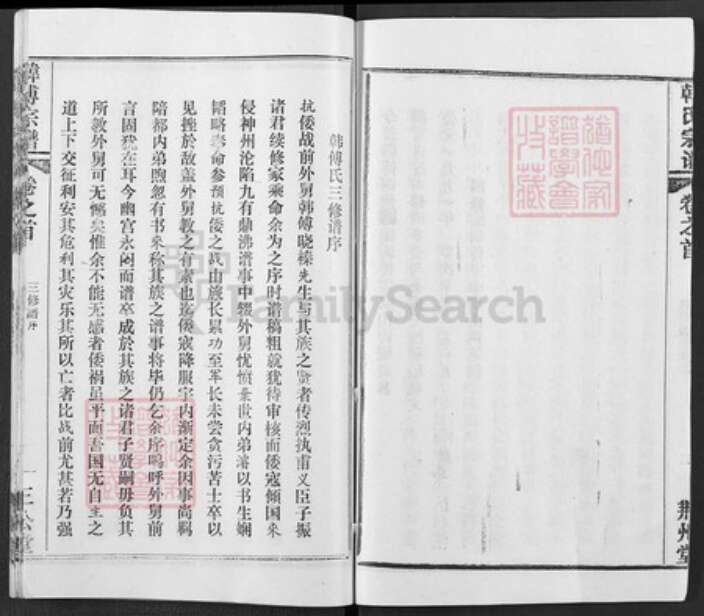 韩氏宗谱
卷之首
荆州堂
韩傅氏三修谱序
抗倭战前外舅韩傅晓榛先生与其族之贤者传烈执甫义臣子振
诸君续修家乘命余为之序时谱稿粗就犹待审核而倭寇倾国来
侵神州沦陷九有鼎沸谱事中辍外舅忧愤弃世内弟濬以书生娴
韬略奉命参预抗倭之战由族长累功至军长未尝贪污苦士卒以
见挫於敌盖外舅教之有素也迄倭寇降服宇内渐定余因事尚羁
陪都内弟煦忽有书来称其族之谱事将毕仍乞余序呜呼外舅前
言固犹在耳今幽宫永闭而谱卒成於其族之诸君子贤嗣毋负其
所教外舅可无憾矣惟余不能无感者倭祸虽平而吾国无自主之
道上下交征利安其危利其灾乐其所以亡者比战前尤甚若乃强
韩傅宗谱
卷之首
三修谱序
一
三公堂
FamilySearch